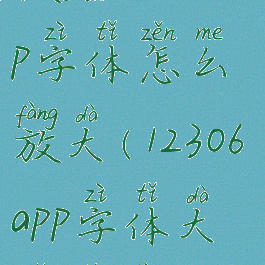 zì tǐ zěn me
P字体怎么
fàng dà
放大(12306
zì tǐ dà
app字体大